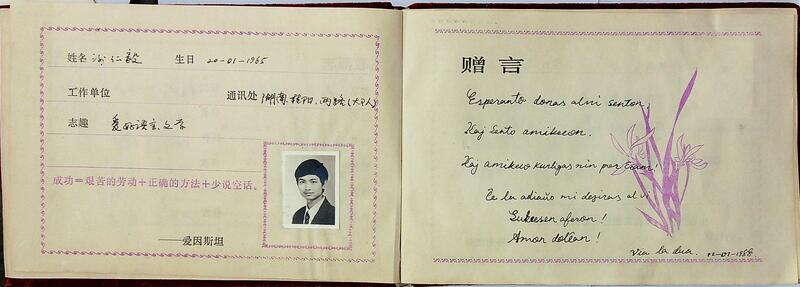 姓名 谢仁毅 生日 20-01-1965
工作单位 通讯处 湖南、桂阳、两路(大个人)
志趣 爱好语言、文学
成功=艰苦的劳动+正确的方法+少说空话。
——爱因斯坦
赠言
Esperanto donas al ni senton,
Kaj Sento amikecon.
Kaj amikeco kunligas nin por ĉiam!
Ĉe la adiaŭo mi deziras al vi
Sukcesen aferon!
Amon dolĉan!
Via la dua. 12-07-1988